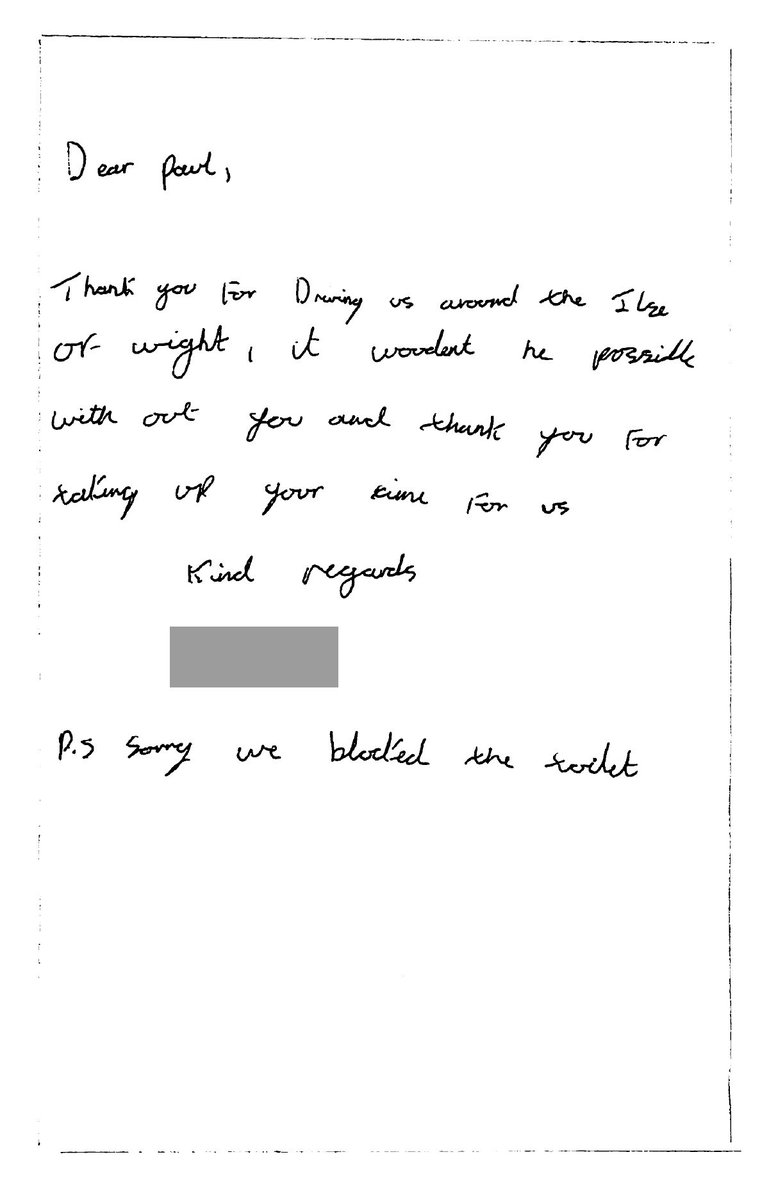 Dear Paul,
Thank you for Driving us around the Ilse
of wight, it woodent be possible
with out you and thank you for
taking up your time for us
Kind regards
P.S Sorry we blocked the toilet